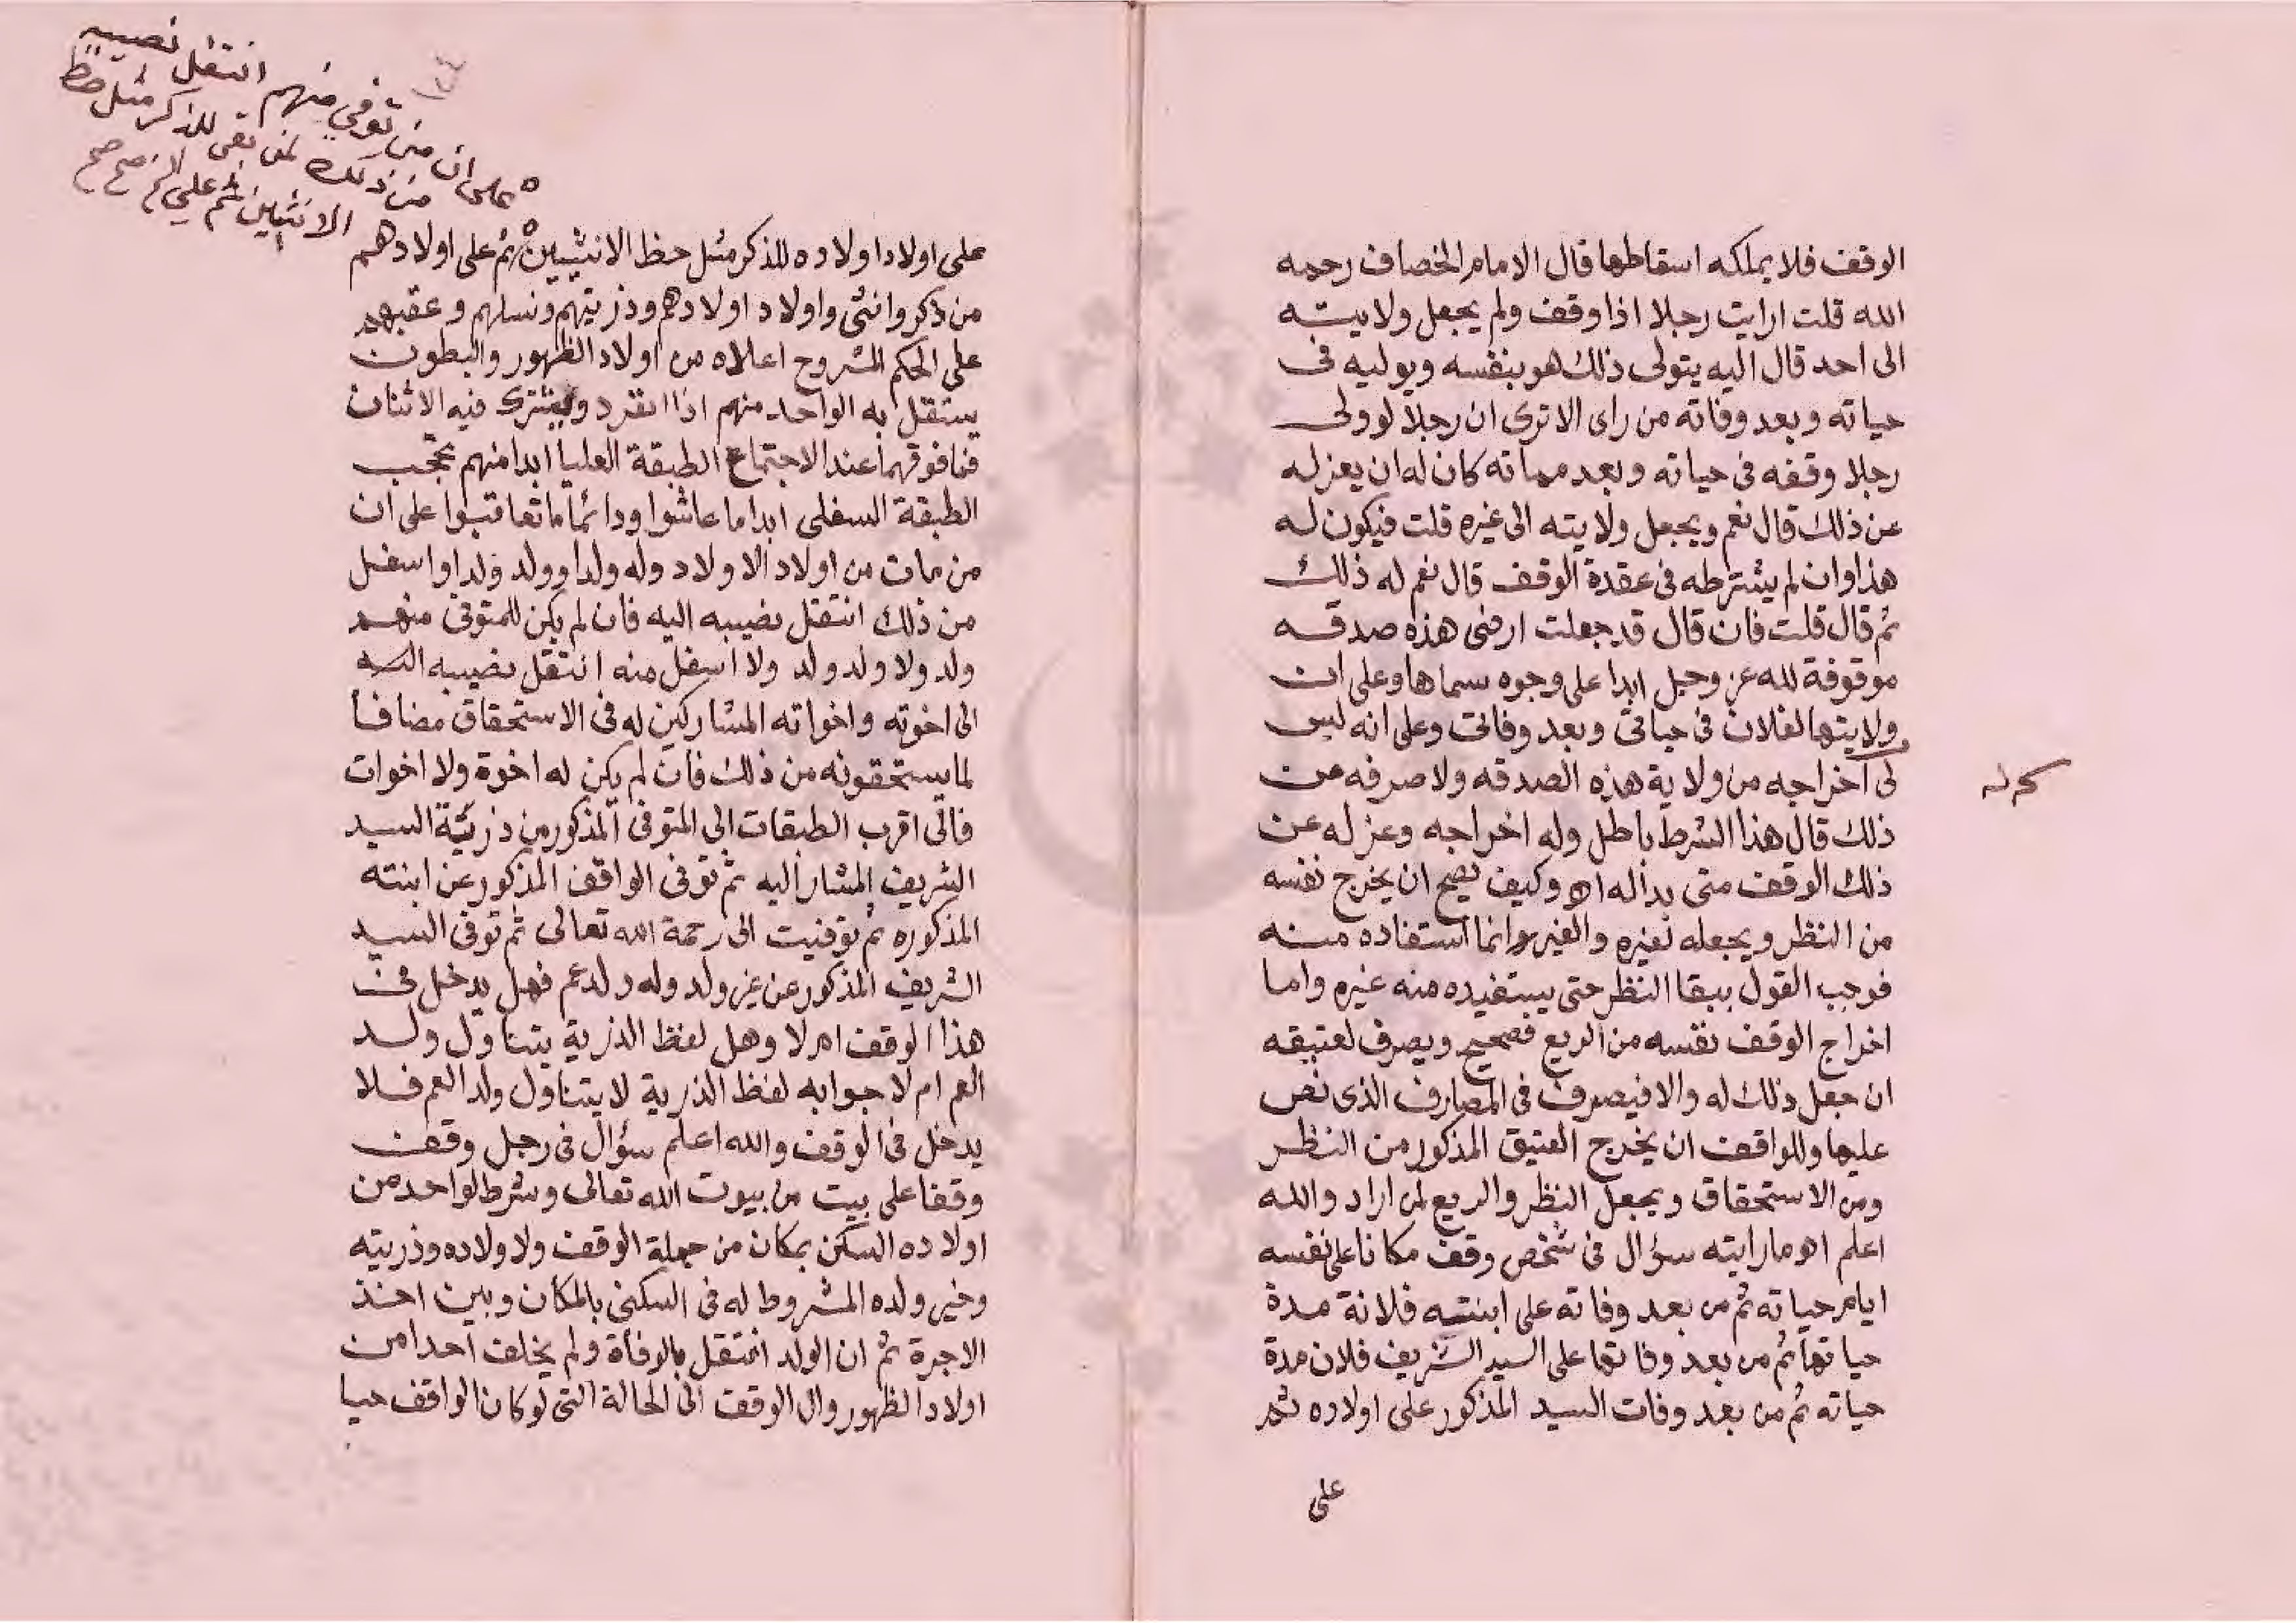 الوقف فلا يملكه اسقاطها قال الامام الخصاف رحمه
الله قلت ارايت رجلا اذا وقف ولم يجعل ولايته
الى احد قال اليه يتولى ذلك هو بنفسه ويوليه فى
حياته وبعد وفاته من راى الا ترى ان رجلا لو ولى
رجلا وقفه فى حياته وبعد مماته كان له ان يعزله
عن ذلك قال نعم ويجعل ولايته الى غيره قلت فيكون له
هذا وان لم يشترطه فى عقدة الوقف قال نعم له ذلك
ثم قال قلت فان قال قد جعلت ارضى هذه صدقه
موقوفة لله عز وجل ابدا على وجوه سماها وعلى ان
ولايتها لفلان فى حياتى وبعد وفاتى وعلى انه ليس
لى اخراجه من ولاية هذه الصدقه ولا صرفه عن
ذلك قال هذا الشرط باطل وله اخراجه وعزله عن
ذلك الوقف متى بدا له اه وكيف يصح ان يخرج نفسه
من النظر ويجعله لغيره والغير وانما استفاده منه
فوجب القول ببقا النظر حتى يستفيده منه غيره واما
اخراج الوقف نفسه من الريع فصحيح ويصرف لعتيقه
ان جعل ذلك له والا فيصرف فى المصارف الذى نص
عليها وللواقف ان يخرج العتيق المذكور من النظر
ومن الاستحقاق ويجعل النظر والريع لمن اراد والله
اعلم اه ما رايته سؤال فى شخص وقف مكانا على نفسه
ايام حياته ثم من بعد وفاته على ابنته فلانة مدة
حياتها ثم من بعد وفاتها على السيد الشريف فلان مدة
حياته ثم من بعد وفات السيد المذكور على اولاده ثم
على
على اولاد اولاده للذكر مثل حظ الانثيين ثم على اولادهم
من ذكر وانثى واولاد اولادهم وذريتهم ونسلهم وعقبهم
على الحكم المشروح اعلاه من اولاد الظهور والبطون
يستقل به الواحد منهم اذا انفرد ويشترك فيه الاثنان
فما فوقهما عند الاجتماع الطبقة العليا ابدا منهم تحجب
الطبقة السفلى ابدا ما عاشوا ودائما ما تعاقبوا على ان
من مات من اولاد الاولاد وله ولد او ولد ولد او اسفل
من ذلك انتقل نصيبه اليه فان لم يكن للمتوفى منهم
ولد ولا ولد ولد ولا اسفل منه انتقل نصيبه
الى اخوته واخواته المشاركين له فى الاستحقاق مضافا
لما يستحقونه من ذلك فان لم يكن له اخوة ولا اخوات
فالى اقرب الطبقات الى المتوفى المذكور من ذرية السيد
الشريف المشار اليه ثم توفى الواقف المذكور عن ابنته
المذكوره ثم توفيت الى رحمة الله تعالى ثم توفى السيد
الشريف المذكور عن غير ولد وله ولد عم فهل يدخل فى
هذا الوقف ام لا وهل لفظ الذرية يتناول ولد
العم ام لا جوابه لفظ الذرية لا يتناول ولد العم فلا
يدخل فى الوقف والله اعلم سؤال فى رجل وقف
وقفا على بيت من بيوت الله تعالى وشرط لواحد من
اولاده السكن بمكان من جملة الوقف ولاولاده وذريته
وخير ولده المشروط له فى السكنى بالمكان وبين اخذ
الاجرة ثم ان الولد انتقل بالوفاة ولم يخلف احدا من
اولاد الظهور وال الوقف الى الحالة التى لو كان الواقف حيا
على ان من توفي منهم انتقل نصيبه
من ذلك لمن بقى للذكر مثل حظ
الانثيين ثم على صح صح
١٢٤